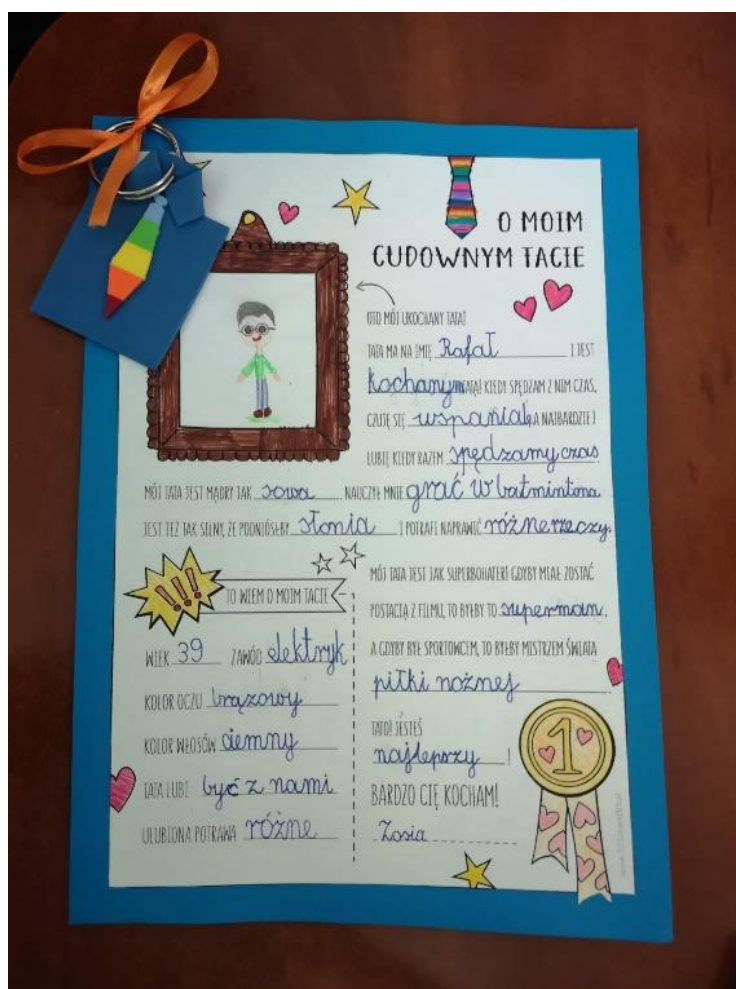 O MOIM
CUDOWNYM TACIE
OTO MÓJ UKOCHANY TATA!
TATA MA NA IMIĘ Rafał I JEST
kochanym TATĄ! KIEDY SPĘDZAM Z NIM CZAS,
CZUJĘ SIĘ wspaniale, A NAJBARDZIEJ
LUBIĘ KIEDY RAZEM spędzamy czas.
MÓJ TATA JEST MĄDRY JAK sowa NAUCZYŁ MNIE grać w batmintona.
JEST TEŻ TAK SILNY, ŻE PODNIÓSŁBY słonia I POTRAFI NAPRAWIĆ różne rzeczy.
!!! TO WIEM O MOIM TACIE
WIEK 39 ZAWÓD elektryk
KOLOR OCZU brązowy
KOLOR WŁOSÓW ciemny
TATA LUBI być z nami
ULUBIONA POTRAWA różne
MÓJ TATA JEST JAK SUPERBOHATER! GDYBY MIAŁ ZOSTAĆ
POSTACIĄ Z FILMU, TO BYŁBY TO superman.
A GDYBY BYŁ SPORTOWCEM, TO BYŁBY MISTRZEM ŚWIATA
piłki nożnej.
TATO! JESTEŚ
najlepszy!
BARDZO CIĘ KOCHAM!
Zosia
1